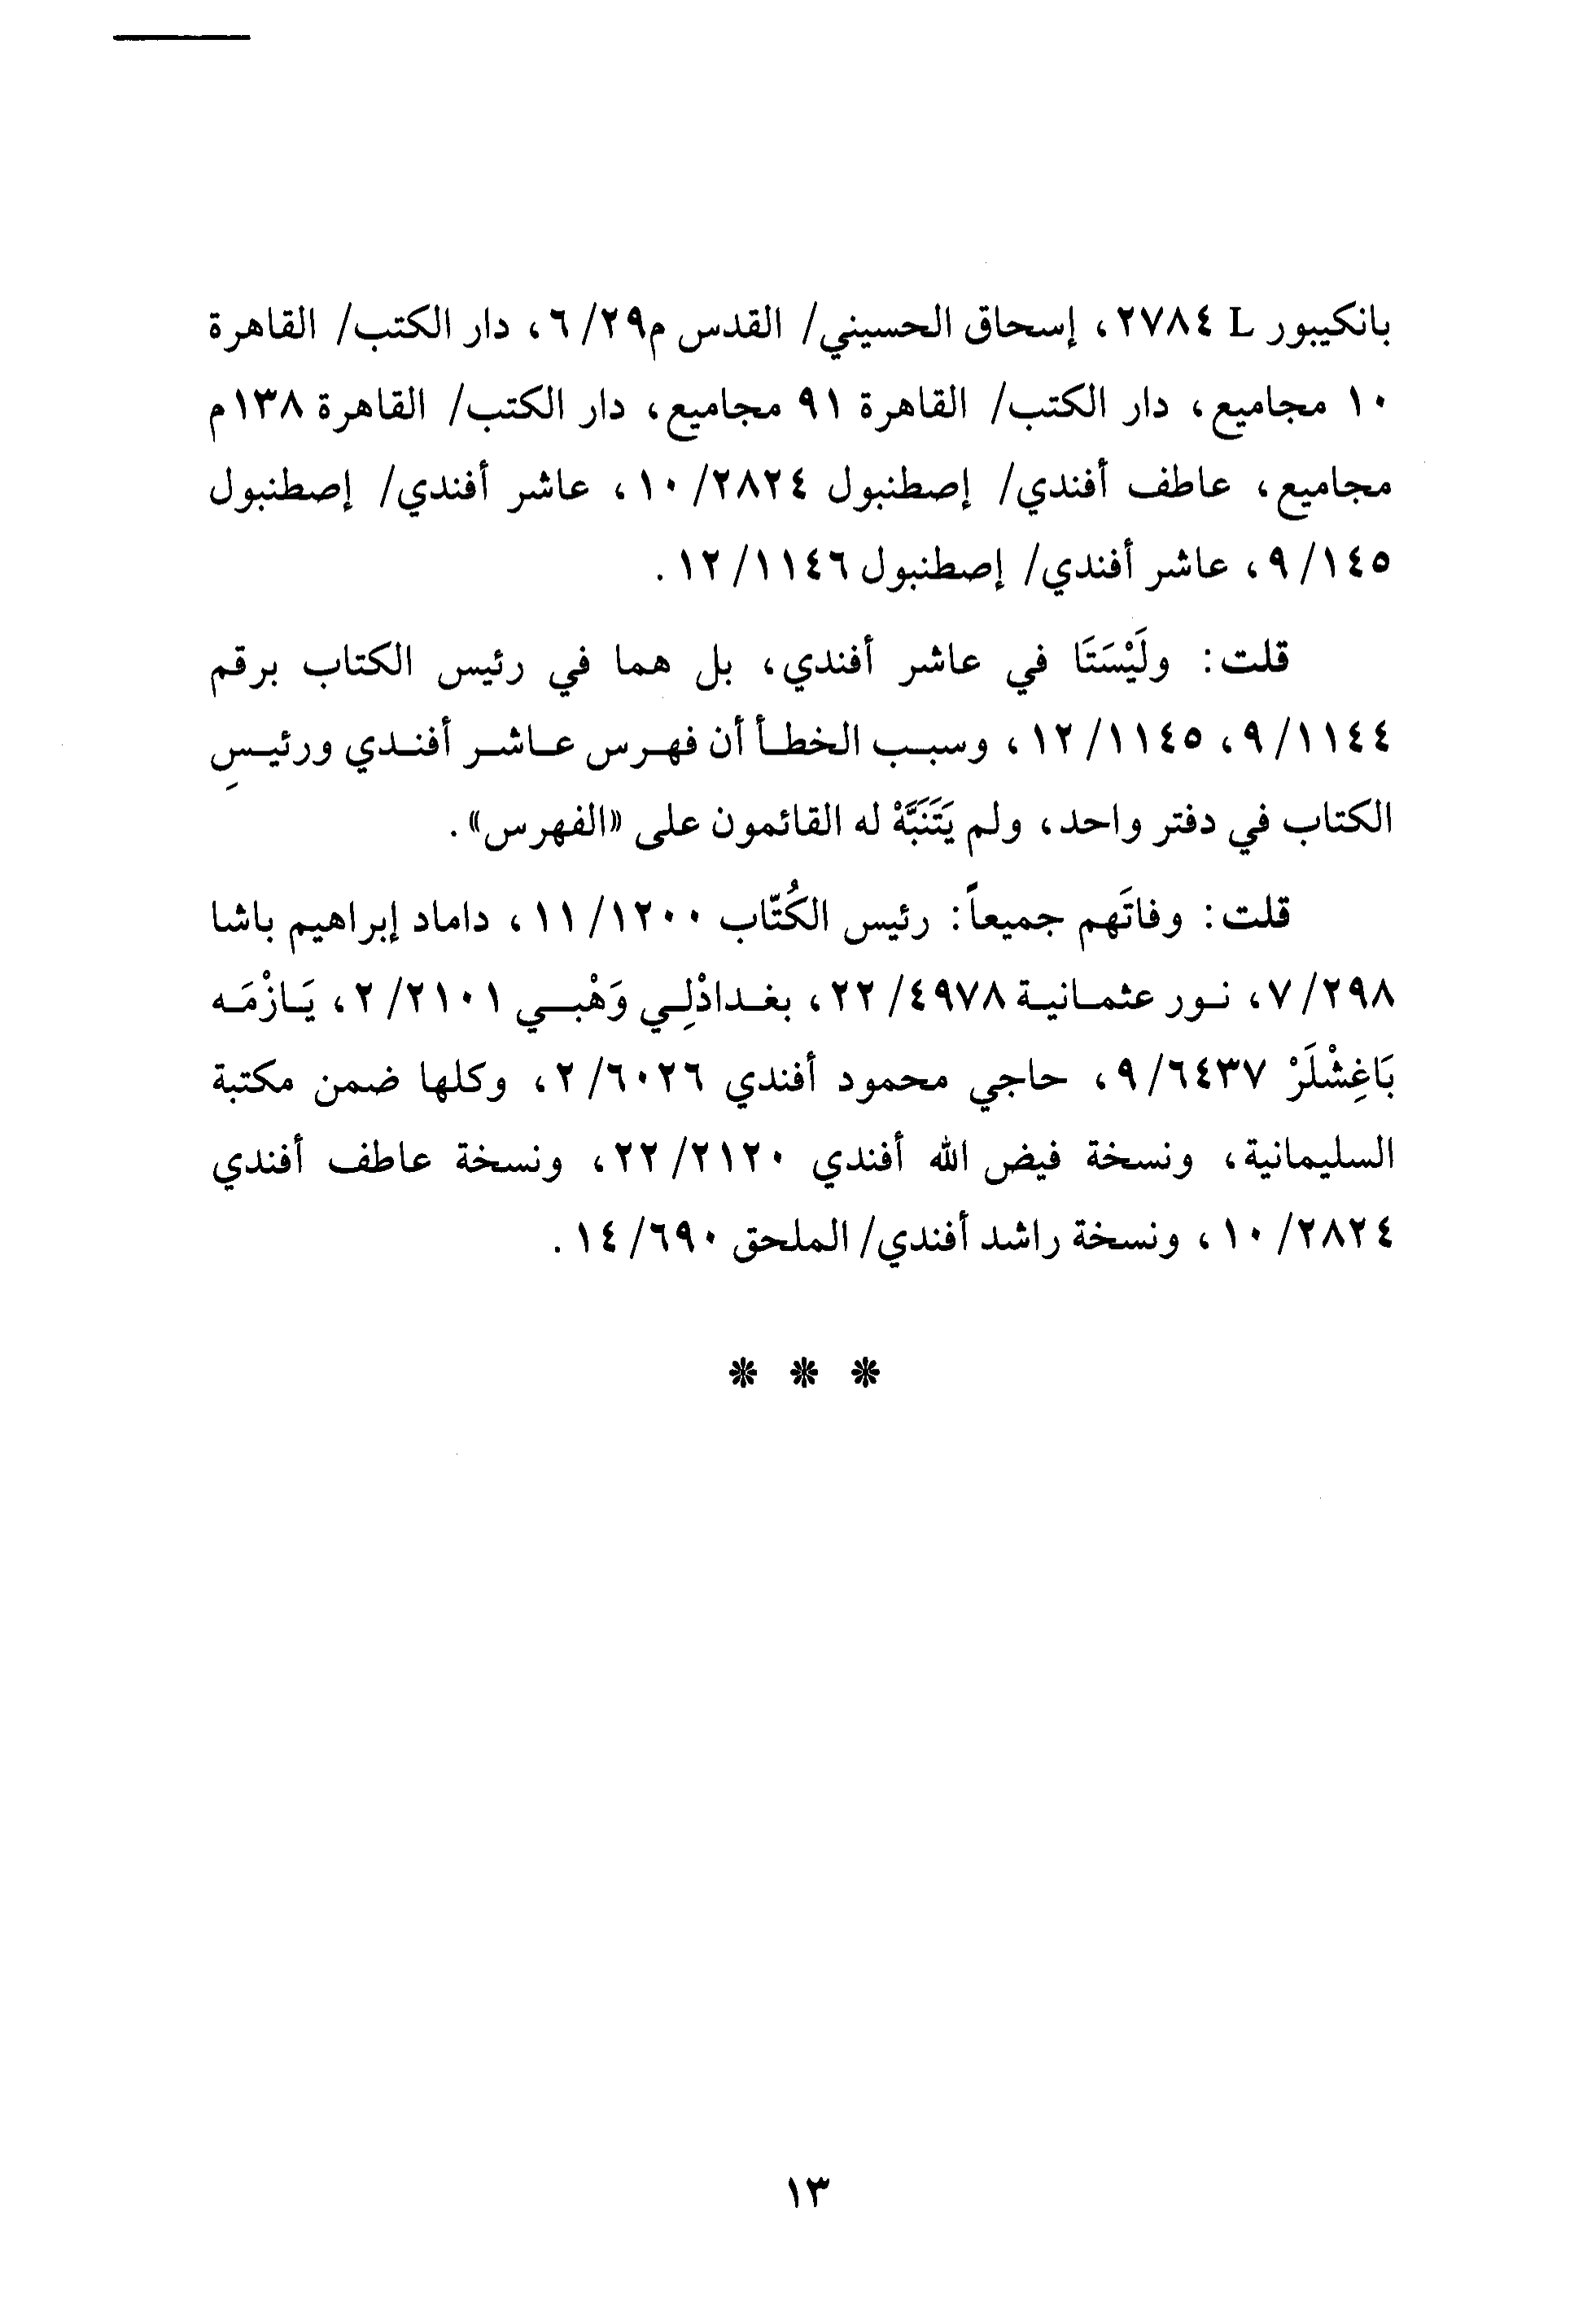 بانكيبور L ٢٧٨٤، إسحاق الحسيني/ القدس م٢٩/ ٦، دار الكتب/ القاهرة
١٠ مجاميع، دار الكتب/ القاهرة ٩١ مجاميع، دار الكتب/ القاهرة ١٣٨م
مجاميع، عاطف أفندي/ إصطنبول ٢٨٢٤/ ١٠، عاشر أفندي/ إصطنبول
١٤٥/ ٩، عاشر أفندي/ إصطنبول ١١٤٦/ ١٢.
قلت: ولَيْسَتَا في عاشر أفندي، بل هما في رئيس الكتاب برقم
١١٤٤/ ٩، ١١٤٥/ ١٢، وسبب الخطأ أن فهرس عاشر أفندي ورئيسِ
الكتاب في دفتر واحد، ولم يَتَنَبَّهْ له القائمون على «الفهرس».
قلت: وفاتَهم جميعاً: رئيس الكُتّاب ١٢٠٠/ ١١، داماد إبراهيم باشا
٢٩٨/ ٧، نور عثمانية ٤٩٧٨/ ٢٢، بغدادْلِي وَهْبي ٢١٠١/ ٢، يَازْمَه
بَاغِشْلَرْ ٦٤٣٧/ ٩، حاجي محمود أفندي ٦٠٢٦/ ٢، وكلها ضمن مكتبة
السليمانية، ونسخة فيض الله أفندي ٢١٢٠/ ٢٢، ونسخة عاطف أفندي
٢٨٢٤/ ١٠، ونسخة راشد أفندي/ الملحق ٦٩٠/ ١٤.
* * *
١٣